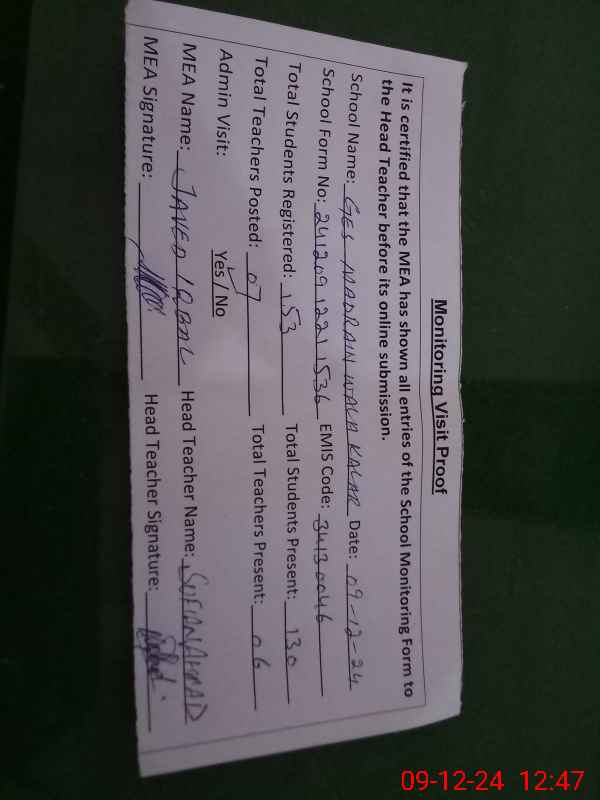 Monitoring Visit Proof
It is certified that the MEA has shown all entries of the School Monitoring Form to
the Head Teacher before its online submission.
School Name: GES MADRAIN WALA KALAR Date: 09-12-24
School Form No: 24120912211536 EMIS Code: 34130046
Total Students Registered: 153 Total Students Present: 130
Total Teachers Posted: 07 Total Teachers Present: 06
Admin Visit: Yes / No
MEA Name: JAVED IQBAL Head Teacher Name: SUFIAN AHMAD
MEA Signature: Head Teacher Signature:
09-12-24 12:47